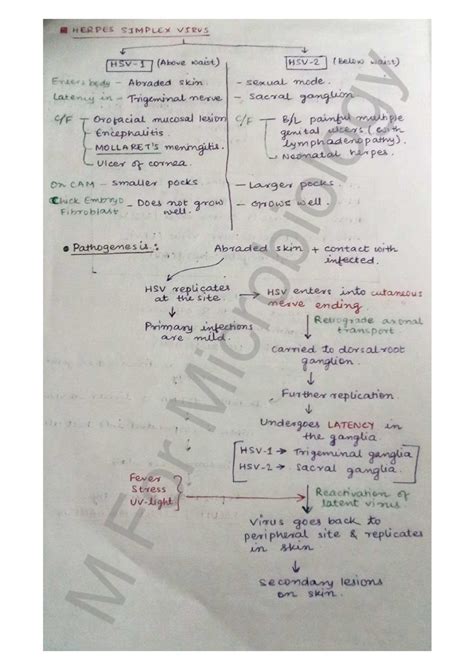 HERPES SIMPLEX VIRUS
HSV-1 (Above waist)
HSV-2 (Below waist)
Enters body - Abraded skin
- Sexual mode.
Latency in - Trigeminal nerve
- Sacral ganglion
C/F - Orofacial mucosal lesion
- Encephalitis.
- MOLLARET'S meningitis.
- Ulcer of cornea.
C/F - B/L painful multiple
genital ulcers (with
lymphadenopathy).
- Neonatal herpes.
On CAM - smaller pocks
- Larger pocks.
Chick Embryo
Fibroblast - Does not grow
well.
- Grows well.
Pathogenesis:
Abraded skin + contact with
infected.
HSV replicates
at the site.
HSV enters into cutaneous
nerve ending
Primary infections
are mild.
Retrograde axonal
transport
carried to dorsal root
ganglion.
Further replication
Undergoes LATENCY in
the ganglia.
HSV-1 → Trigeminal ganglia
HSV-2 → Sacral ganglia.
Fever
Stress
UV-light
Reactivation of
latent virus.
Virus goes back to
peripheral site & replicates
in skin
Secondary lesions
on skin.
M For Microbiology